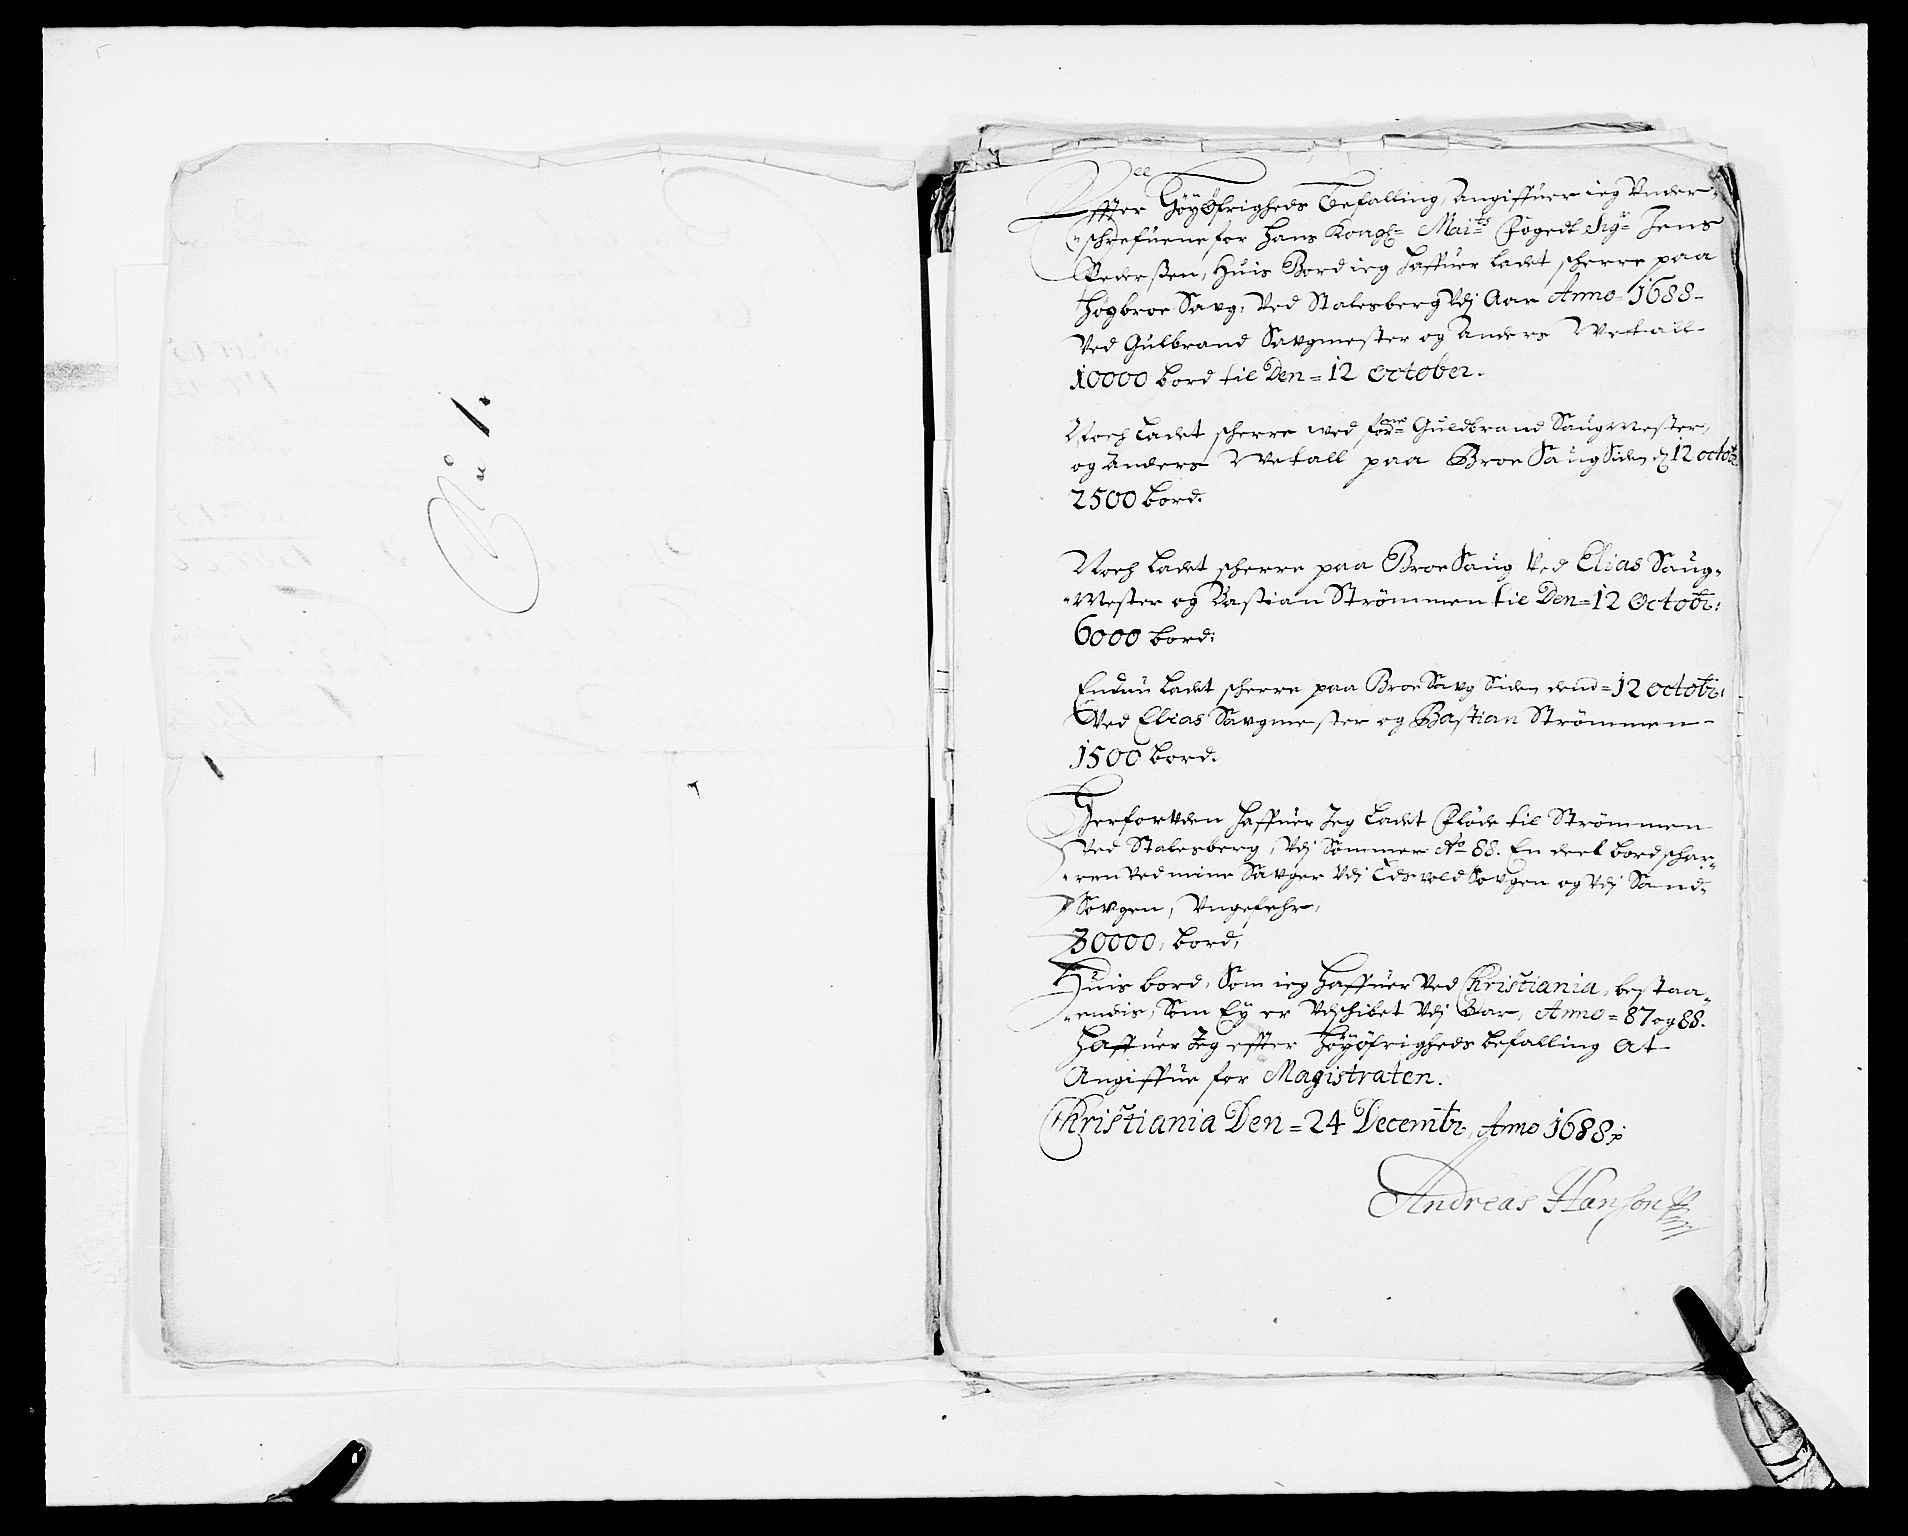 No 1.
Effter Høyöfrigheds Befalling, Angiffuer ieg Under-
schrefuene for Hans Kongl- Maits Fogedt Sigr Jens
Pederßen, Huis Bord ieg Haffuer ladet scherre paa
Høgbroe Saug, Ved Stalesberg Udj Aar Anno 1688-
Ved Gulbrand Saugmester og Anders Wetall
10000 bord til Den = 12 October.
Noch Ladet scherre wed forne Guldbrand Saugmester,
og Anders Wetall paa Broe Saug Siden d 12 octobr
2500 bord.
Noch Ladet scherre paa Broe Saug Ved Elias Saug-
Mester og Bastian Strömmen til Den = 12 Octobr:
6000 bord:
Endnu Ladet scherre paa Broe Saug Siden dend = 12 octobr:
Ved Elias Saugmester og Bastian Strömmen-
1500 bord.
Herforuden Haffuer Jeg Ladet Flöde til Strömmen
Ved Stalesberg, Udj Sommer Ao 88. En deel bord schar-
ren ved mine Sauger Udj Saugen og Udj Sand-
Saugen, Ungefehr,
30000, bord,
Huis bord, Som ieg Haffuer Ved Christiania, bestaa-
endis, Som Ey er Udschibet Udj Aar, Anno = 87 og 88.
Haffuer Jeg effter Høyöfrigheds befalling At
Angiffue for Magistraten.
Christiania Den = 24 Decembr, Anno 1688
Andreas Hanson